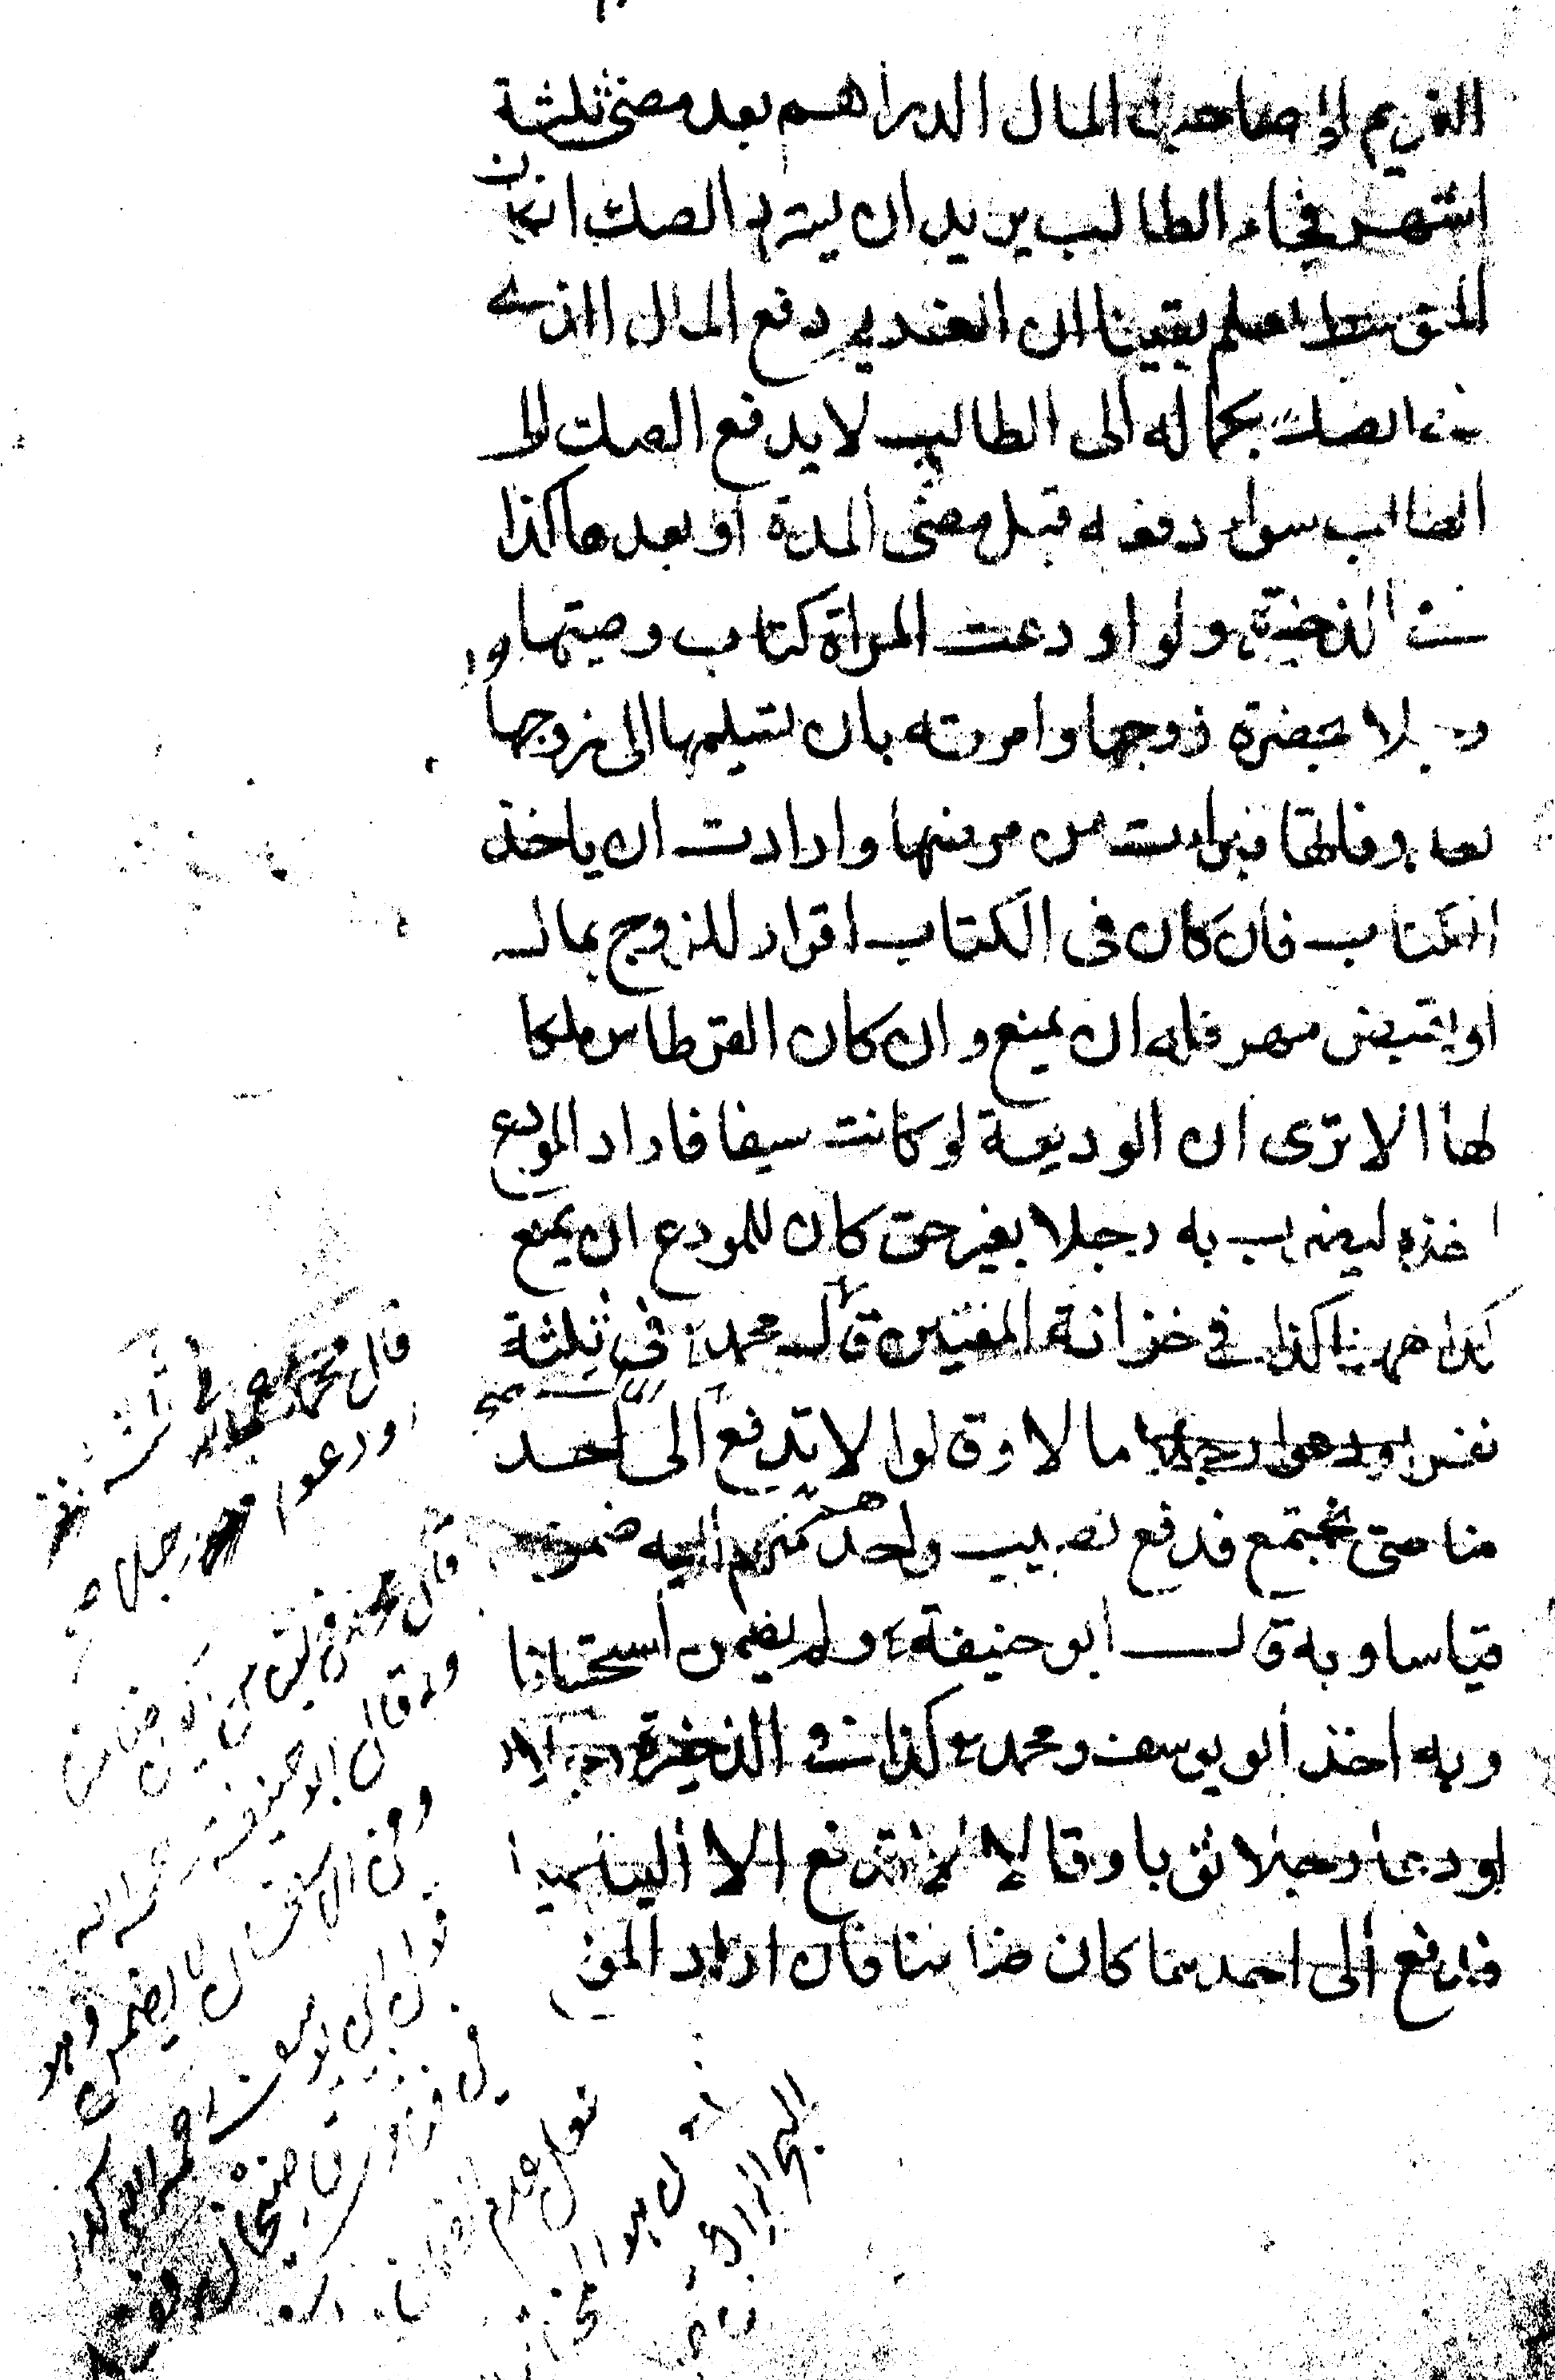 الغريم الى صاحب المال الدراهم بعد مضى ثلثة
اشهر فجاء الطالب يريد ان يسترد الصك ان كان
المتوسط يعلم يقينا ان الغريم دفع المال الذي
في الصك بكماله الى الطالب لا يدفع الصك الى
الطالب سواء دفعه قبل مضى المدة او بعدها كذا
في الذخيرة ولو اودعت المراة كتاب وصيتها
رجلا بحضرة زوجها وامرته بان يسلمها الى زوجها
بعد وفاتها فبراءت من مرضها وارادت ان ياخذ
الكتاب فان كان فى الكتاب اقرار للزوج بمال
او بقبض مهر فله ان يمنع وان كان القرطاس ملكا
لها الا ترى ان الوديعة لو كانت سيفا فاراد المودع
اخذه ليضرب به رجلا بغير حق كان للمودع ان يمنع
كذا ههنا كذا في خزانة المفتين قال محمد في ثلثة
نفر اودعوا رجلا مالا وقالوا لا تدفع الى احد
منا حتى نجتمع فدفع نصيب واحد منهم اليه ضمن
قياسا وبه قال ابو حنيفة ولم يضمن استحسانا
وبه اخذ ابو يوسف ومحمد كذا في الذخيرة رجلان
اودعا رجلا ثوبا وقالا لا تدفع الا الينا جميعا
فدفع الى احدهما كان ضامنا فان اراد
قال محمد رحمه الله فى ثلثة نفر
اودعوا رجل
وبه قال ابو حنيفة رحمه الله
وفى الاستحسان لا يضمن وهو
قول ابى يوسف
فى فتاوى قاضيخان